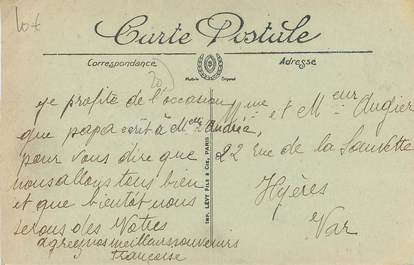 Carte Postale
Correspondance
Adresse
Modèle Déposé
je profite de l'occasion
que papa écrit à Melle Andréa,
pour vous dire que
nous allons tous bien
et que bientôt nous
serons des Vôtres
agreez nos meilleurs souvenirs
françoise
IMP. LÉVY FILS & CIE, PARIS
Mme et Meur Augier
22 Rue de la Sauvette
Hyères
Var